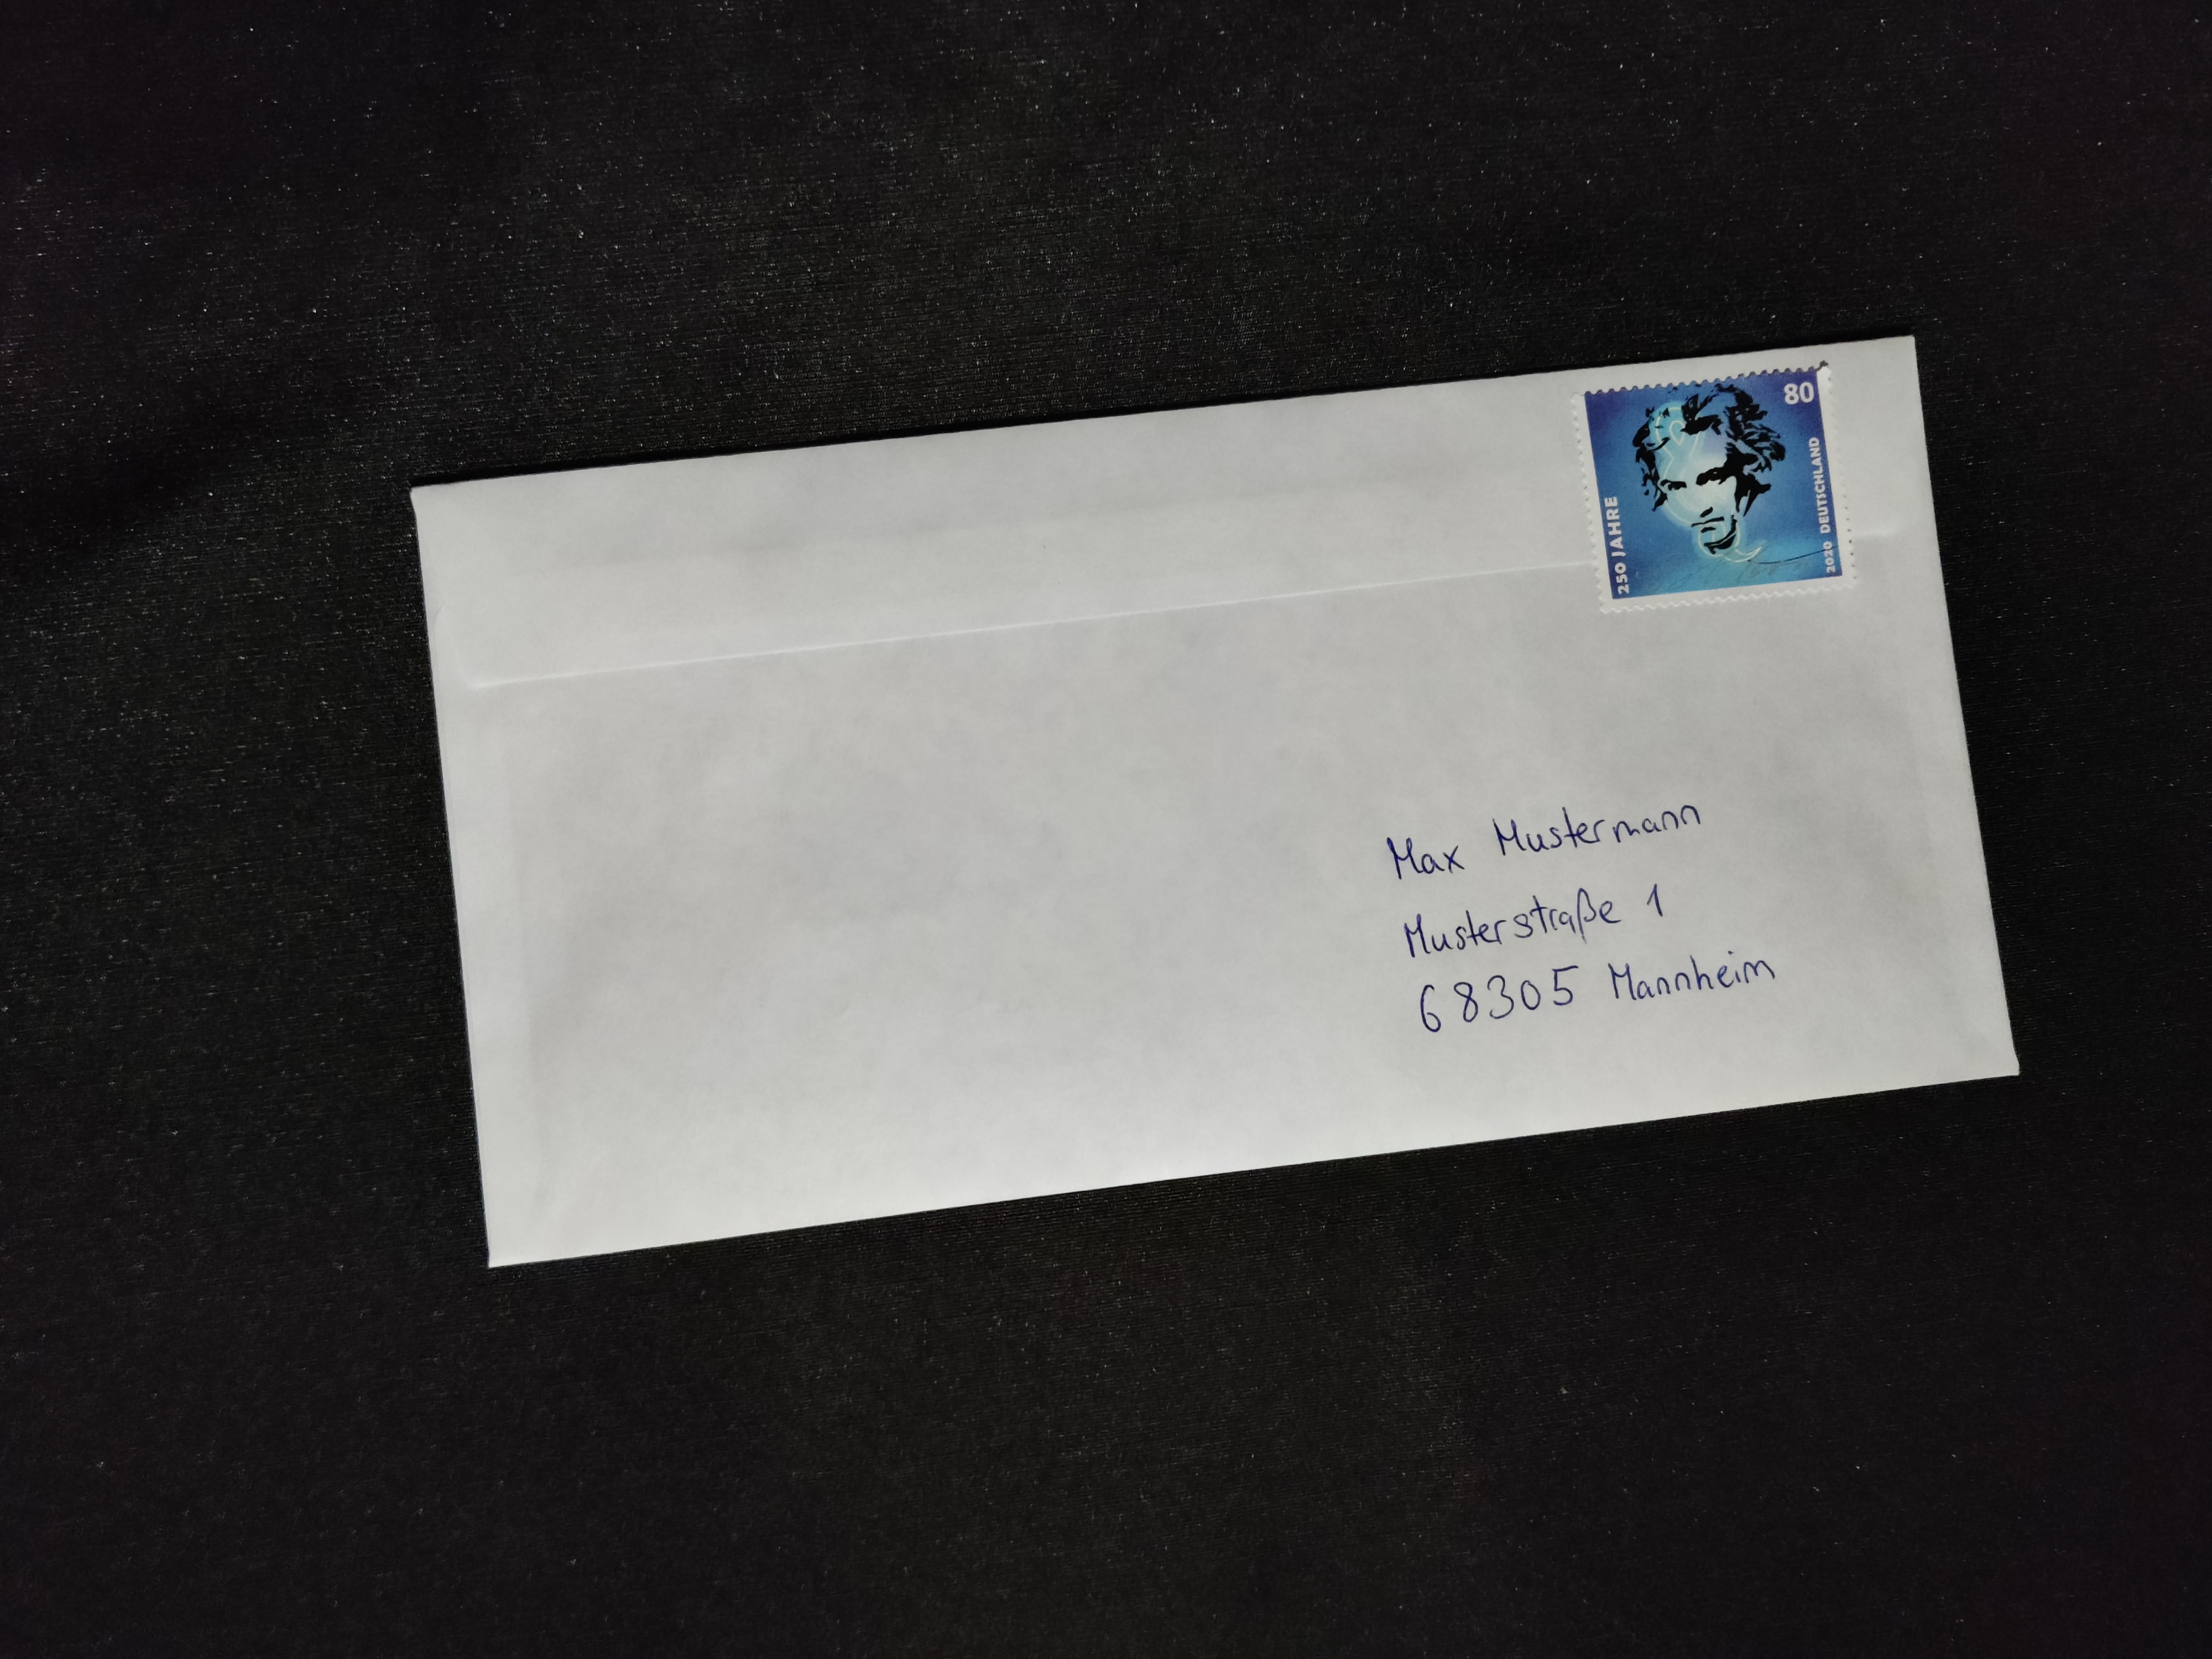 80
250 JAHRE
2020 DEUTSCHLAND
Max Mustermann
Musterstraße 1
68305 Mannheim